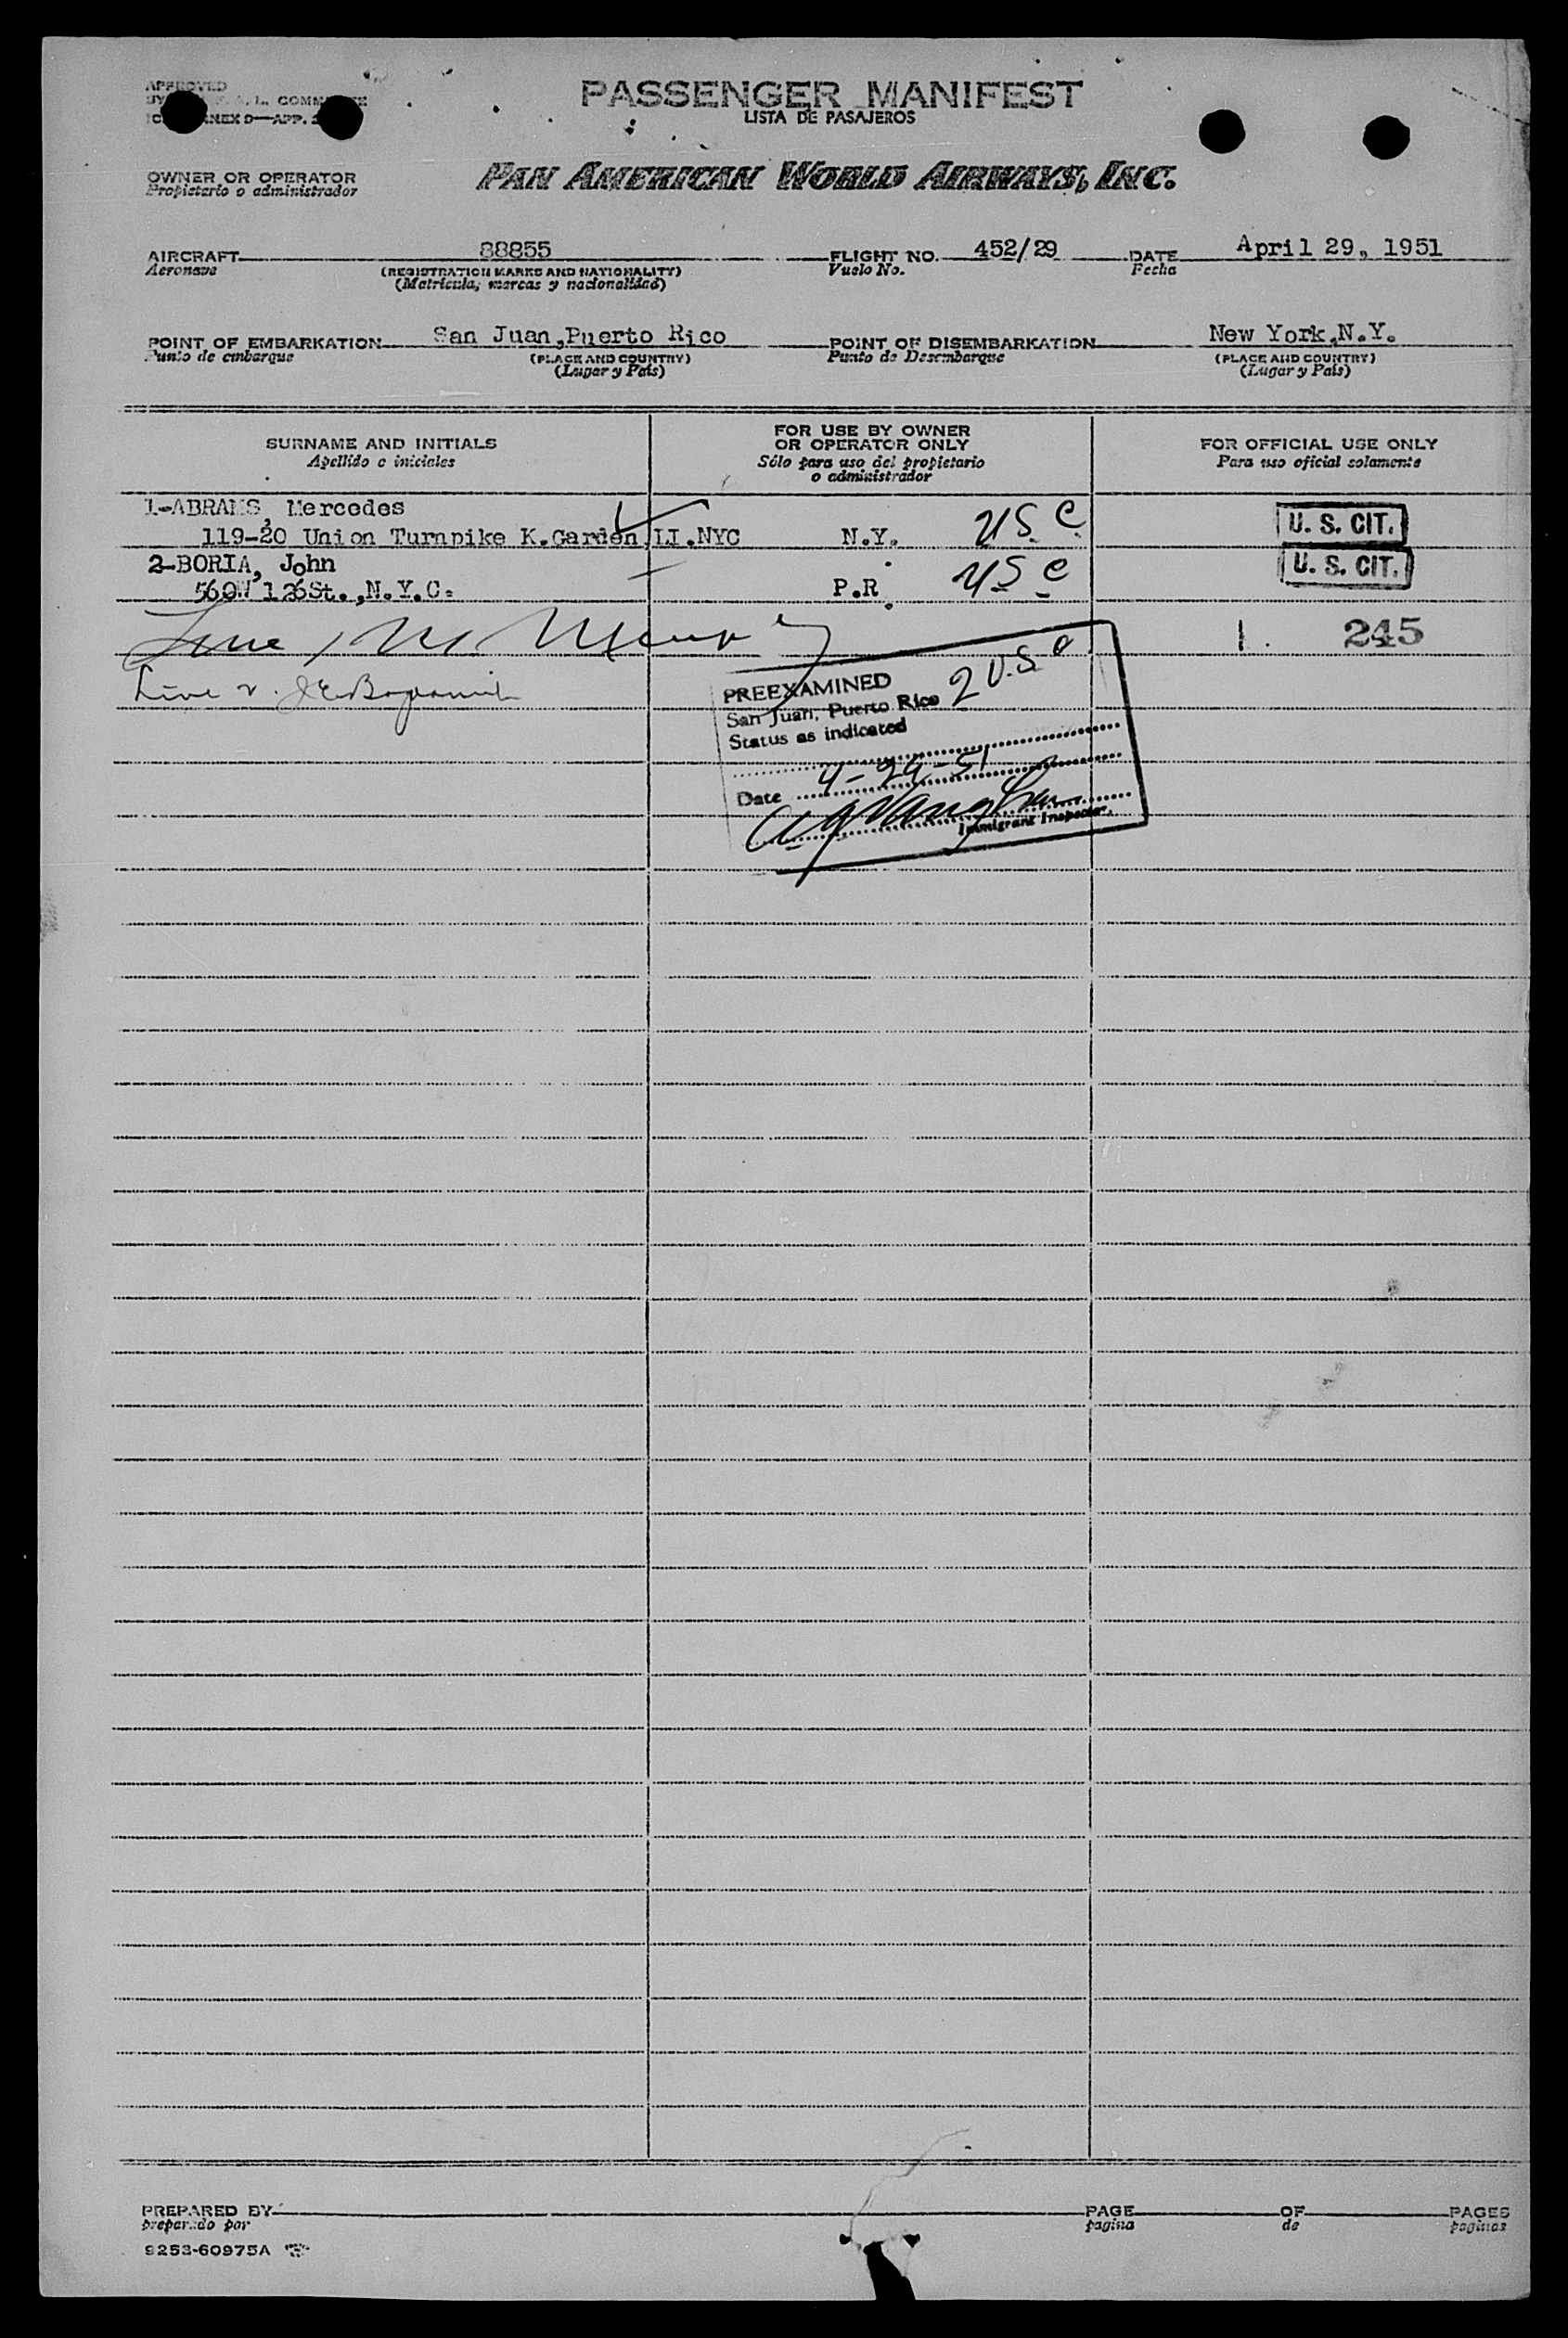 APPROVED
COMMITTEE
ANNEX 9—APP.
PASSENGER MANIFEST
LISTA DE PASAJEROS
OWNER OR OPERATOR
Propietario o administrador
PAN AMERICAN WORLD AIRWAYS, INC.
AIRCRAFT 88855 FLIGHT NO. 452/29 DATE April 29, 1951
Aeronave (REGISTRATION MARKS AND NATIONALITY) Vuelo No. Fecha
(Matricula, marcas y nacionalidad)
POINT OF EMBARKATION San Juan,Puerto Rico POINT OF DISEMBARKATION New York,N.Y.
Punto de embarque (PLACE AND COUNTRY) Punto de Desembarque (PLACE AND COUNTRY)
(Lugar y País) (Lugar y País)
SURNAME AND INITIALS
Apellido e iniciales
FOR USE BY OWNER
OR OPERATOR ONLY
Sólo para uso del propietario
o administrador
FOR OFFICIAL USE ONLY
Para uso oficial solamente
1-ABRAMS, Mercedes
119-20 Union Turnpike K.Garden,LI.NYC N.Y. USC U. S. CIT.
2-BORIA, John U. S. CIT.
560W 126St.,N.Y.C. P.R. USC
1. 245
Line
PREEXAMINED 2 USC
San Juan, Puerto Rico
Status as indicated
Date 4-29-51
Immigrant Inspector.
PREPARED BY PAGE OF PAGES
preparado por pagina de paginas
9253-60975A